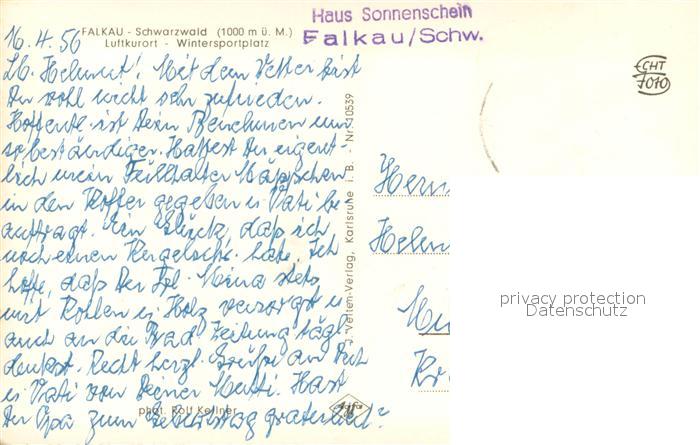 16.4.56
FALKAU - Schwarzwald (1000 m ü. M.)
Luftkurort - Wintersportplatz
Haus Sonnenschein
Falkau/Schw.
ECHT
FOTO
Lb. Helmut! Mit dem Wetter bist
Du wohl nicht sehr zufrieden.
Hoffentl. ist Dein Benehmen um
so beständiger. Hattest Du eigent-
lich mein Füllhalter Mäppchen
in den Koffer gegeben u. Vati be
auftragt. Ein Glück, daß ich
noch einen Kugelschr. habe. Ich
hoffe, daß Du Frl. Mina stets
mit Kohlen u. Holz versorgst u.
auch an die Bad Zeitung tägl.
denkst. Recht herzl. Grüße an Dich
u. Vati von Deiner Mutti. Hast
Du Opa zum Geburtstag gratuliert?
phot. Rolf Kellner
Agfa
Vetten-Verlag, Karlsruhe i. B. - Nr. 10539
Herrn
Helm
privacy protection
Datenschutz